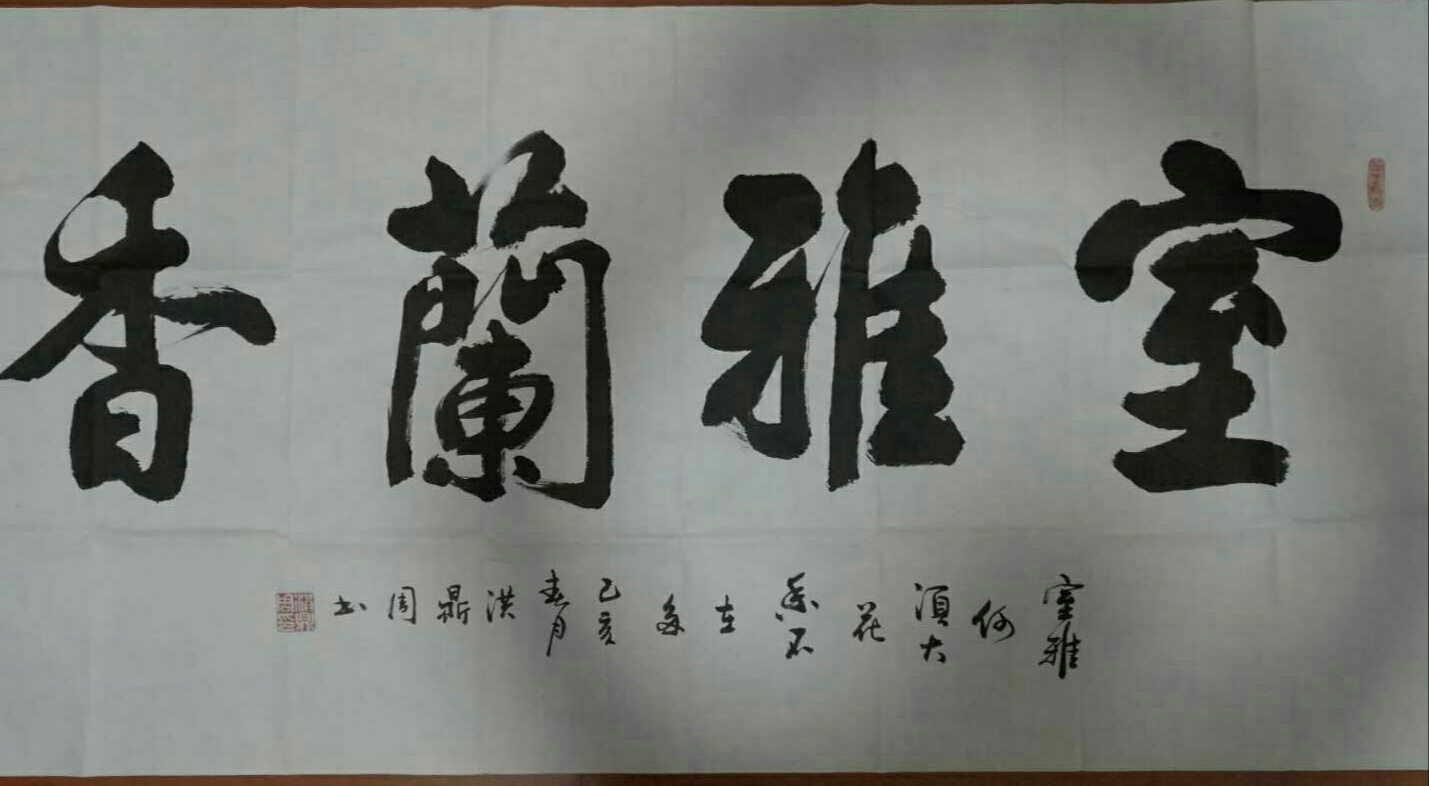 室雅蘭香
室雅
何
須大
花
香不
在
多
己亥
春月
洪
鼎
周
书